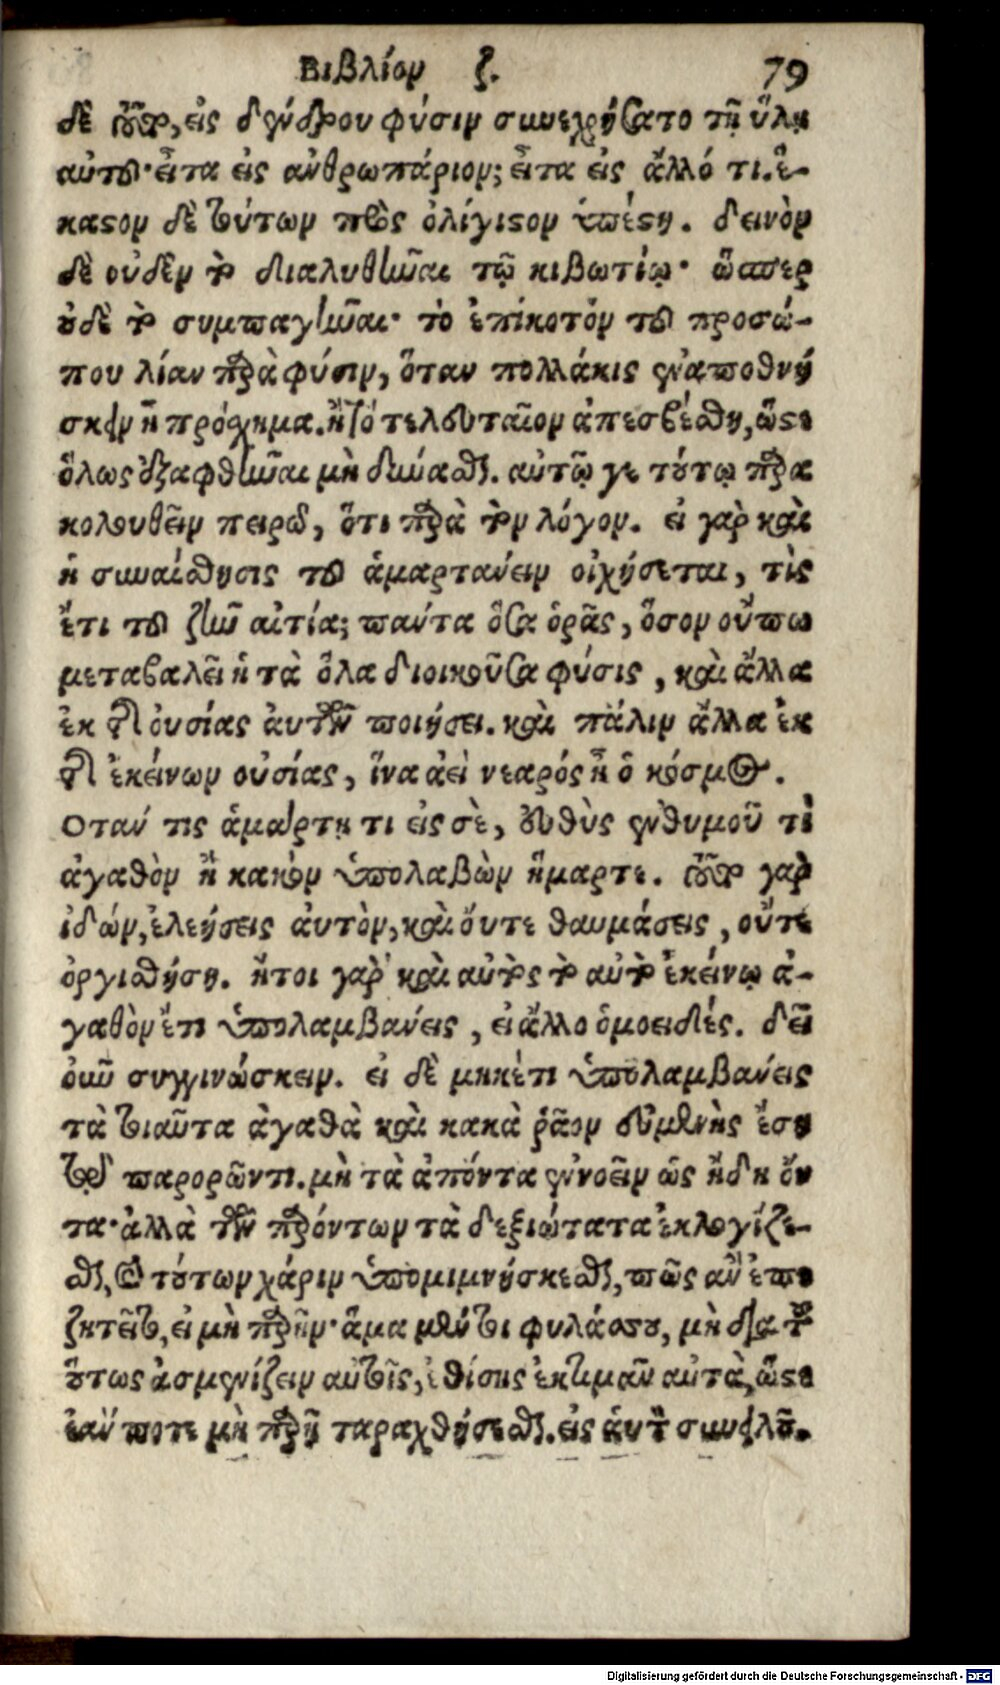 Βιβλίον ζ. 79
δὲ τοῦτον, εἰς δένδρου φύσιν συνεχρήσατο τῇ ὕλῃ
αὐτοῦ· εἶτα εἰς ἀνθρωπάριον; εἶτα εἰς ἄλλό τι. ἕ-
καστον δὲ τούτων πρὸς ὀλίγιστον ὑπέστη. δεινὸν
δὲ οὐδὲν τὸ διαλυθῆναι τῷ κιβωτίῳ· ὥσπερ
οὐδὲ τὸ συμπαγῆναι· τὸ ἐπίκοτον τοῦ προσώ-
που λίαν παρὰ φύσιν, ὅταν πολλάκις ἐναποθνή
σκειν ἢ πρόσχημα. ἢ τὸ τελευταῖον ἀπεσβέσθη, ὥστε
ὅλως ἐξαφθῆναι μὴ δύνασθαι. αὐτῷ γε τούτῳ παρα
κολουθεῖν πειρῶ, ὅτι παρὰ τὸν λόγον. εἰ γὰρ καὶ
ἡ συναίσθησις τοῦ ἁμαρτάνειν οἰχήσεται, τὶς
ἔτι τοῦ ζῆν αἰτία; πάντα ὅσα ὁρᾶς, ὅσον οὔπω
μεταβαλεῖ ἡ τὰ ὅλα διοικοῦσα φύσις, καὶ ἄλλα
ἐκ τῆς οὐσίας αὐτῶν ποιήσει. καὶ πάλιν ἄλλα ἐκ
τῆς ἐκείνων οὐσίας, ἵνα ἀεὶ νεαρός ᾖ ὁ κόσμος.
Οταν τις ἁμάρτῃ τι εἰς σὲ, εὐθὺς ἐνθυμοῦ τὶ
ἀγαθὸν ἢ κακὸν ὑπολαβὼν ἥμαρτε. τοῦτο γὰρ
ἰδών, ἐλεήσεις αὐτὸν, καὶ οὔτε θαυμάσεις, οὔτε
ὀργισθήσῃ. ἤτοι γὰρ καὶ αὐτὸς τὸ αὐτὸ ἐκείνῳ ἀ-
γαθὸν ἔτι ὑπολαμβάνεις, εἰ ἄλλο ὁμοειδές. δεῖ
οὖν συγγινώσκειν. εἰ δὲ μηκέτι ὑπολαμβάνεις
τὰ τοιαῦτα ἀγαθὰ καὶ κακὰ ῥᾷον εὐμενὴς ἔσῃ
τῷ παρορῶντι. μὴ τὰ ἀπόντα ἐννοεῖν ὡς ἤδη ὄν
τα· ἀλλὰ τῶν παρόντων τὰ δεξιώτατα ἐκλογίζε-
σθαι, καὶ τούτων χάριν ὑπομιμνήσκεσθαι, πῶς ἂν ἐπε
ζητεῖτο, εἰ μὴ παρῆν· ἅμα μέντοι φυλάσσου, μὴ διὰ τοῦ
οὕτως ἀσμενίζειν αὐτοῖς, ἐθίσῃς ἐκτιμᾶν αὐτὰ, ὥστε
ἐάν ποτε μὴ παρῇ ταραχθήσεσθαι. εἰς αὑτὸν συνειλοῦ.
Digitalisierung gefördert durch die Deutsche Forschungsgemeinschaft - DFG